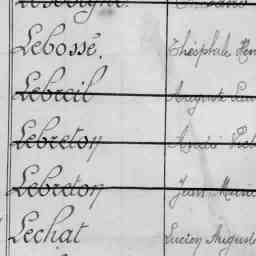 Lebossé. Théophile
Lebreil Auguste
Lebreton André
Lebreton Jean Marie
Lechat Lucien Auguste